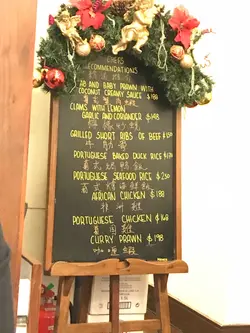 CHEFS
RECOMMENDATIONS
CRAB AND BABY PRAWN WITH
COCONUT CREAMY SAUCE $188
CLAMS WITH LEMON
GARLIC AND CORIANDER $98
GRILLED SHORT RIBS OF BEEF
牛肋骨
PORTUGUESE BAKED DUCK RICE
PORTUGUESE SEAFOOD RICE $250
AFRICAN CHICKEN $188
非洲雞
PORTUGUESE CHICKEN $168
葡國雞
CURRY PRAWN $198
咖喱蝦